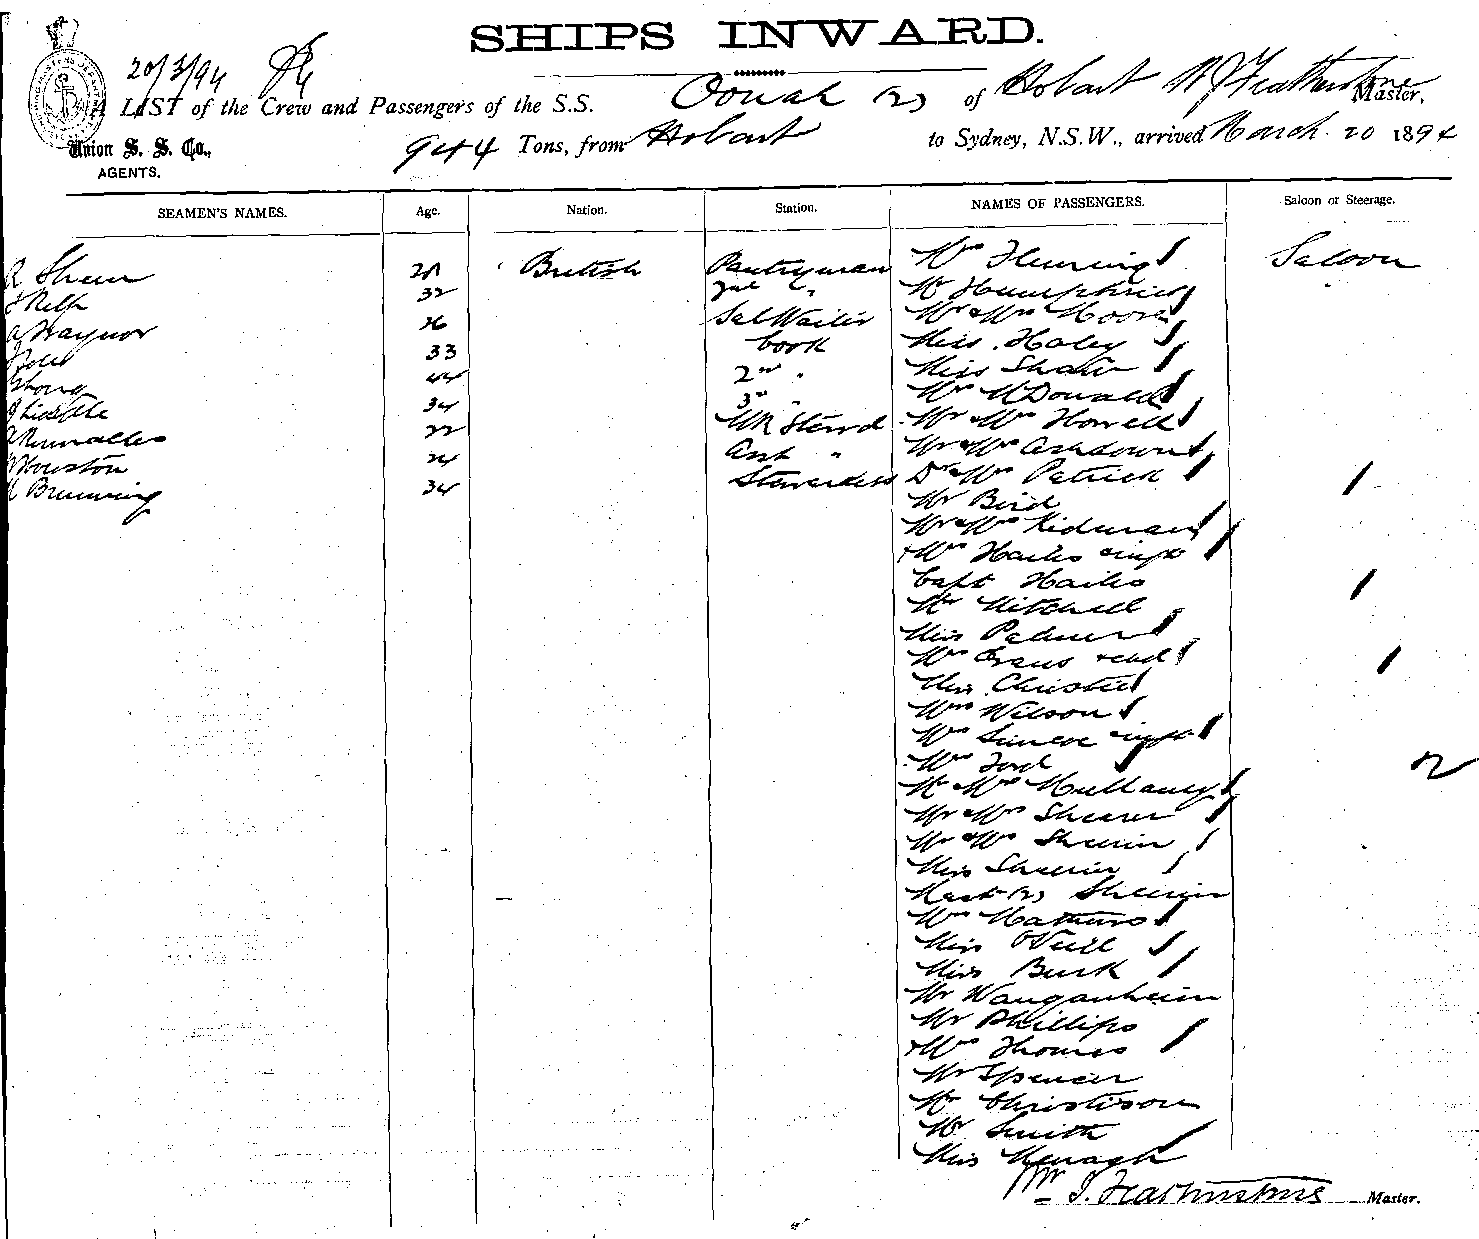 SHIPS INWARD.
20/3/94
A LIST of the Crew and Passengers of the S.S. Oonah (2) of Hobart W J Featherstone Master,
Union S. S. Co., 944 Tons, from Hobart to Sydney, N.S.W., arrived March 20 1894
AGENTS.
SEAMEN'S NAMES. Age. Nation. Station. NAMES OF PASSENGERS. Saloon or Steerage.
British Pantryman Mrs Fleming Saloon
32 2nd " Mr Humphries
Sal Waiter Mr & Mrs Moore
33 Cook Miss Haley
44 2nd " Miss Shaw
34 3rd " Mrs McDonald
22 Mr & Mrs Howell
Houston 24 Asst " Mr & Mrs Ashdown
Brunning 34 Stewardess Dr & Mrs Patrick
Mr Bird
Mr & Mrs Kidman
Mrs Hailes & inft
Capt Hailes
Mr Mitchell
Miss Palmer
Mrs Evans & chd
Miss Christie
Mrs Wilson
Mrs Simcoe & inft
Mrs Ford
Mr & Mrs Mullaney
Mr & Mrs Shearer
Mr & Mrs Sheerin
Miss Sheerin
Mast (2) Sheerin
Mrs Mathers
Miss O'Neill
Miss Burk
Mr Wanganheim
Mr Phillips
Mrs Thomas
Mr Spencer
Mr Christison
Mr Smith
Miss Menagh
Wm J. Featherstone Master.